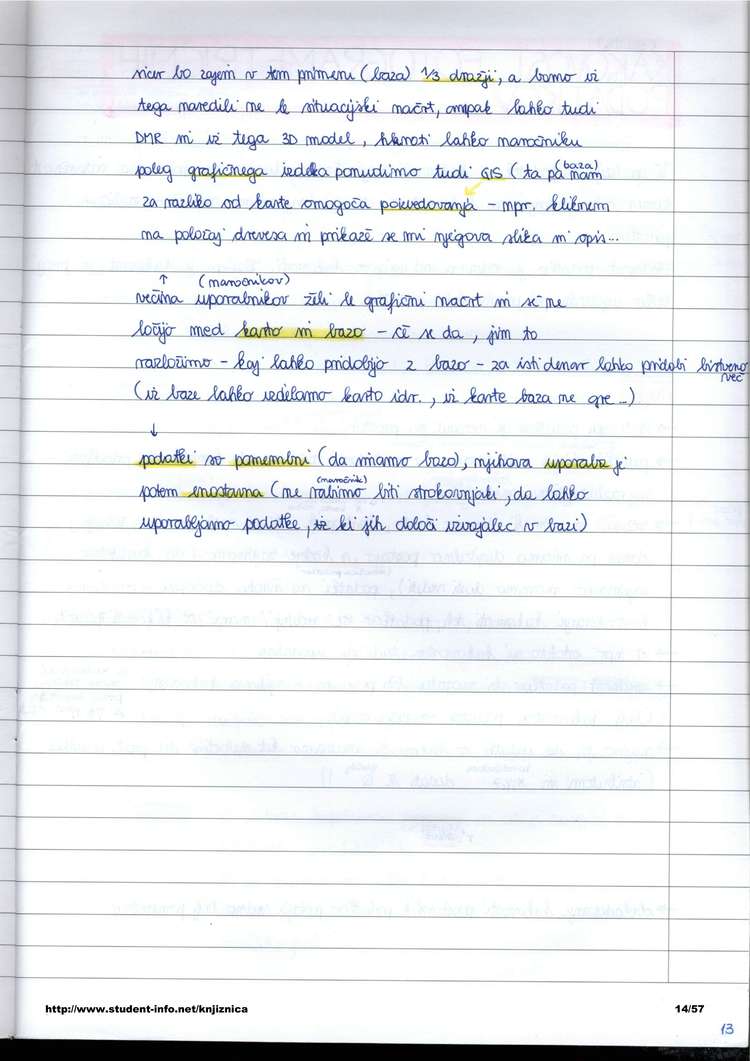 sicer bo zajem v tem primeru (baza) 1/3 dražji, a bomo iz
tega naredili ne le situacijski načrt, ampak lahko tudi
DMR in iz tega 3D model, hkrati lahko naročniku
poleg grafičnega izdelka ponudimo tudi GIS (ta pa nam
(baza)
za razliko od karte omogoča poizvedovanja - npr. kliknem
na položaj drevesa in prikaže se mi njegova slika in opis...
↑ (naročnikov)
večina uporabnikov želi le grafični načrt in se ne
ločijo med karto in bazo - če se da, jim to
razložimo - kaj lahko pridobijo z bazo - za isti denar lahko pridobi bistveno
več
(iz baze lahko izdelamo karto idr., iz karte baza ne gre...)
↓
podatki so pomembni (da imamo bazo), njihova uporaba je
(naročnik)
potem enostavna (ne rabimo biti strokovnjaki, da lahko
uporabljamo podatke, ki jih določi izvajalec v bazi)
http://www.student-info.net/knjiznica
14/57
13